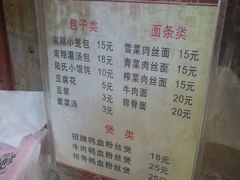 包子类
南翔小笼包 15元
南翔灌汤包 18元
陆氏小馄饨 10元
豆腐花 5元
豆浆 3元
紫菜汤 3元
面条类
雪菜肉丝面 15元
青菜肉丝面 15元
榨菜肉丝面 15元
牛肉面 20元
排骨面 20元
煲类
招牌鸭血粉丝煲 18元
牛肉鸭血粉丝煲 25元
排骨鸭血粉丝煲 25元